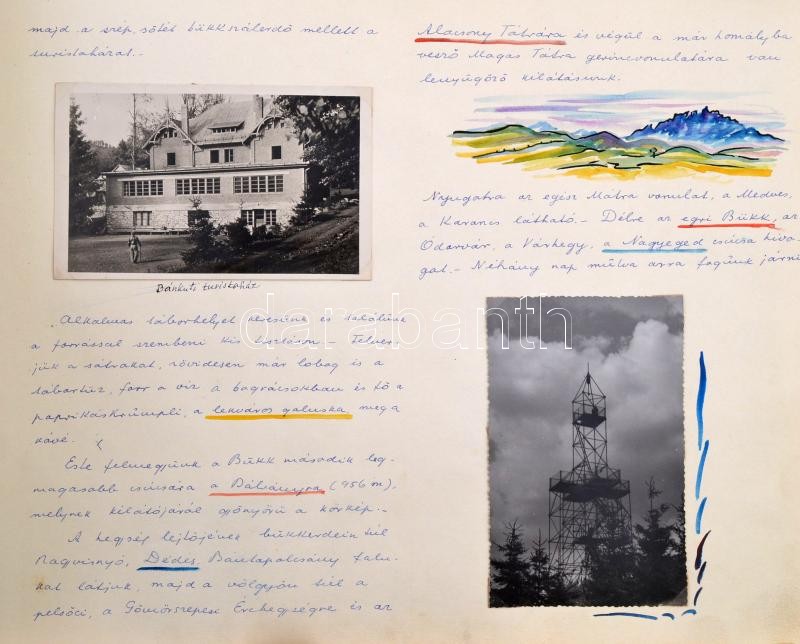 majd a szép, sötét bükkszálerdő mellett a
turistaházat.-
Bánkúti turistaház
Alkalmas táborhelyet keresünk és találunk
a forrással szembeni kis tisztáson - Felver-
jük a sátrakat, rövidesen már lobog is a
tábortűz, forr a víz a bográcsokban és fő a
paprikáskrumpli, a lekváros galuska, meg a
kávé.
Este felmegyünk a Bükk második leg-
magasabb csúcsára a Bálványra (956 m),
melynek kilátójáról gyönyörű a körkép.-
A hegység lejtőjének bükkerdein túl
Nagyvisnyó, Dédes, Bántapolcsány falu-
kat látjuk, majd a völgyön túl a
pelsőci, a Gömörszepesi Érchegységre és az
Alacsony Tátrára és végül a már homályba
vesző Magas Tátra gerincvonulatára van
lenyűgöző kilátásunk.
Nyugatra az egész Mátra vonulat, a Medves,
a Karancs látható.- Délre az egri Bükk, az
Ódorvár, a Várhegy, a Nagyeged csúcsa hívo-
gat.- Néhány nap múlva arra fogunk járni
darabanth